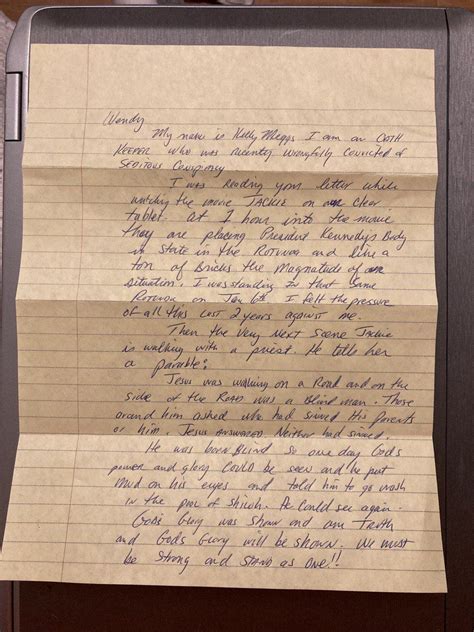 Wendy
My name is Kelly Meggs I am an OATH
KEEPER who was recently wrongfully convicted of
SEDITOUS Conspiracy
I was Reading your letter while
watching the movie JACKIE on our clear
tablet. At 1 hour into the movie
they are placing President Kennedys Body
in State in the Rotunda and like a
ton of Bricks the Magnitude of our
situation. I was standing In that same
Rotunda on Jan 6th. I felt the pressure
of all this last 2 years against me.
Then the very next scene Jackie
is walking with a priest. He tells her
a parable:
Jesus was walking on a Road and on the
side of the ROAD was a Blind man. Those
around him asked who had sinned His parents
or him. Jesus ANSWERED Neither had sinned.
He was born BLIND so one day Gods
power and glory COULD be seen and he put
MUD on his eyes and told him to go wash
in the pool of He could see again.
Gods Glory was shown and our TRUTH
and Gods Glory will be SHOWN. We must
be Strong and STAND as ONE!!